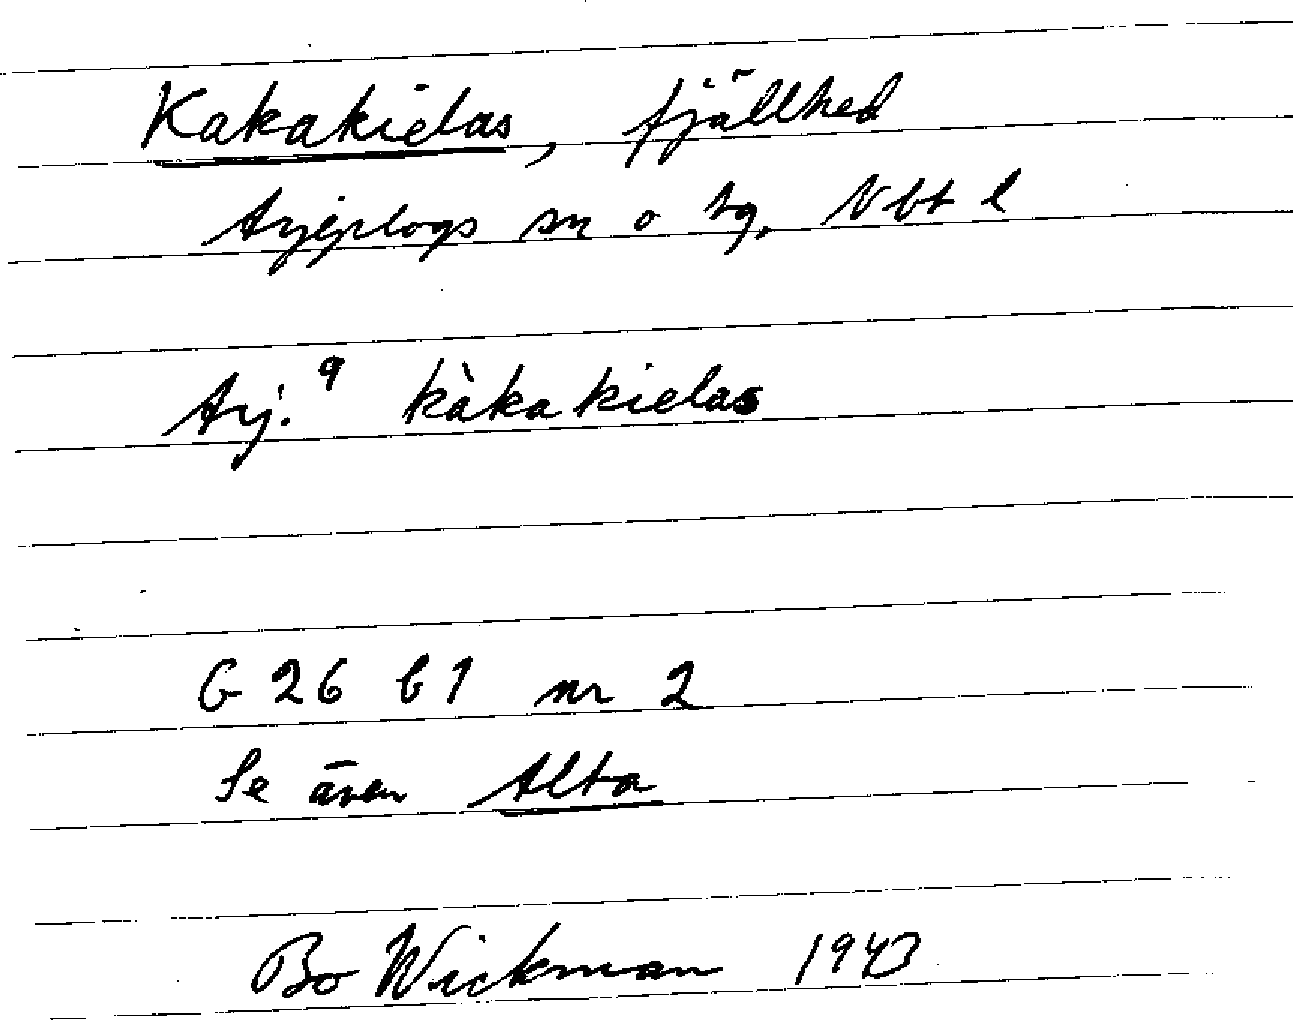 Kakakielas, fjällhed
Arjeplogs sn o tg, Vbt l
Arj. 9 kàka kielas
G 26 b 1 nr 2
Se även Alta
Bo Wickman 1943